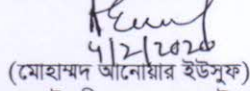 4/2/2020
(মোহাম্মদ আনোয়ার ইউসুফ)